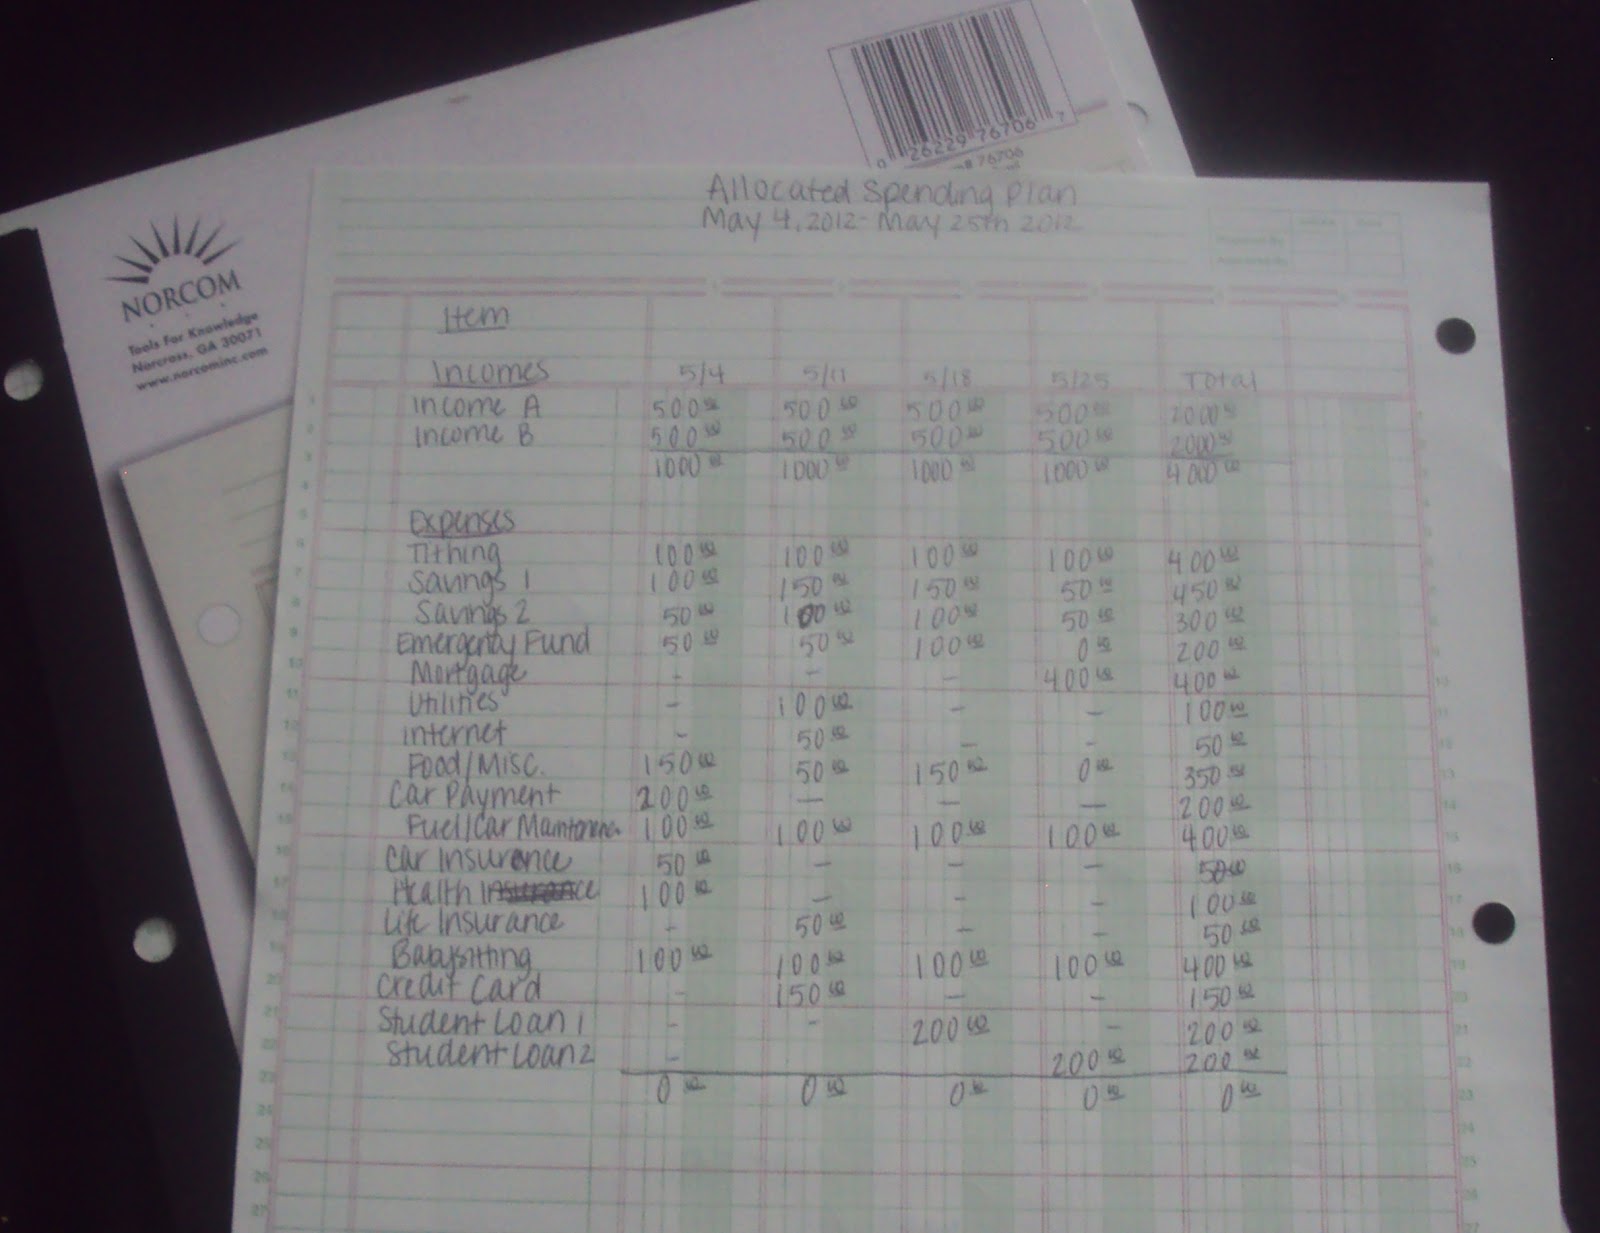 0 26229 76706 7
76706
NORCOM
Tools For Knowledge
Norcross, GA 30071
www.norcominc.com
Allocated Spending Plan
May 4, 2012 - May 25th 2012
Item
Incomes 5/4 5/11 5/18 5/25 Total
Income A 500 00 500 00 500 00 500 00 2000 00
Income B 500 00 500 00 500 00 500 00 2000 00
1000 00 1000 00 1000 00 1000 00 4000 00
Expenses
Tithing 100 00 100 00 100 00 100 00 400 00
Savings 1 100 00 150 00 150 00 50 00 450 00
Savings 2 50 00 100 00 100 00 50 00 300 00
Emergency Fund 50 00 50 00 100 00 0 00 200 00
Mortgage - - - 400 00 400 00
Utilities - 100 00 - - 100 00
Internet - 50 00 - - 50 00
Food/Misc. 150 00 50 00 150 00 0 00 350 00
Car Payment 200 00 - - - 200 00
Fuel/Car 100 00 100 00 100 00 100 00 400 00
Car Insurance 50 00 - - - 50 00
Health Insurance 100 00 - - - 100 00
Life Insurance - 50 00 - - 50 00
Babysitting 100 00 100 00 100 00 100 00 400 00
Credit Card - 150 00 - - 150 00
Student Loan 1 - - 200 00 - 200 00
Student Loan 2 - 200 00 200 00
0 00 0 00 0 00 0 00 0 00